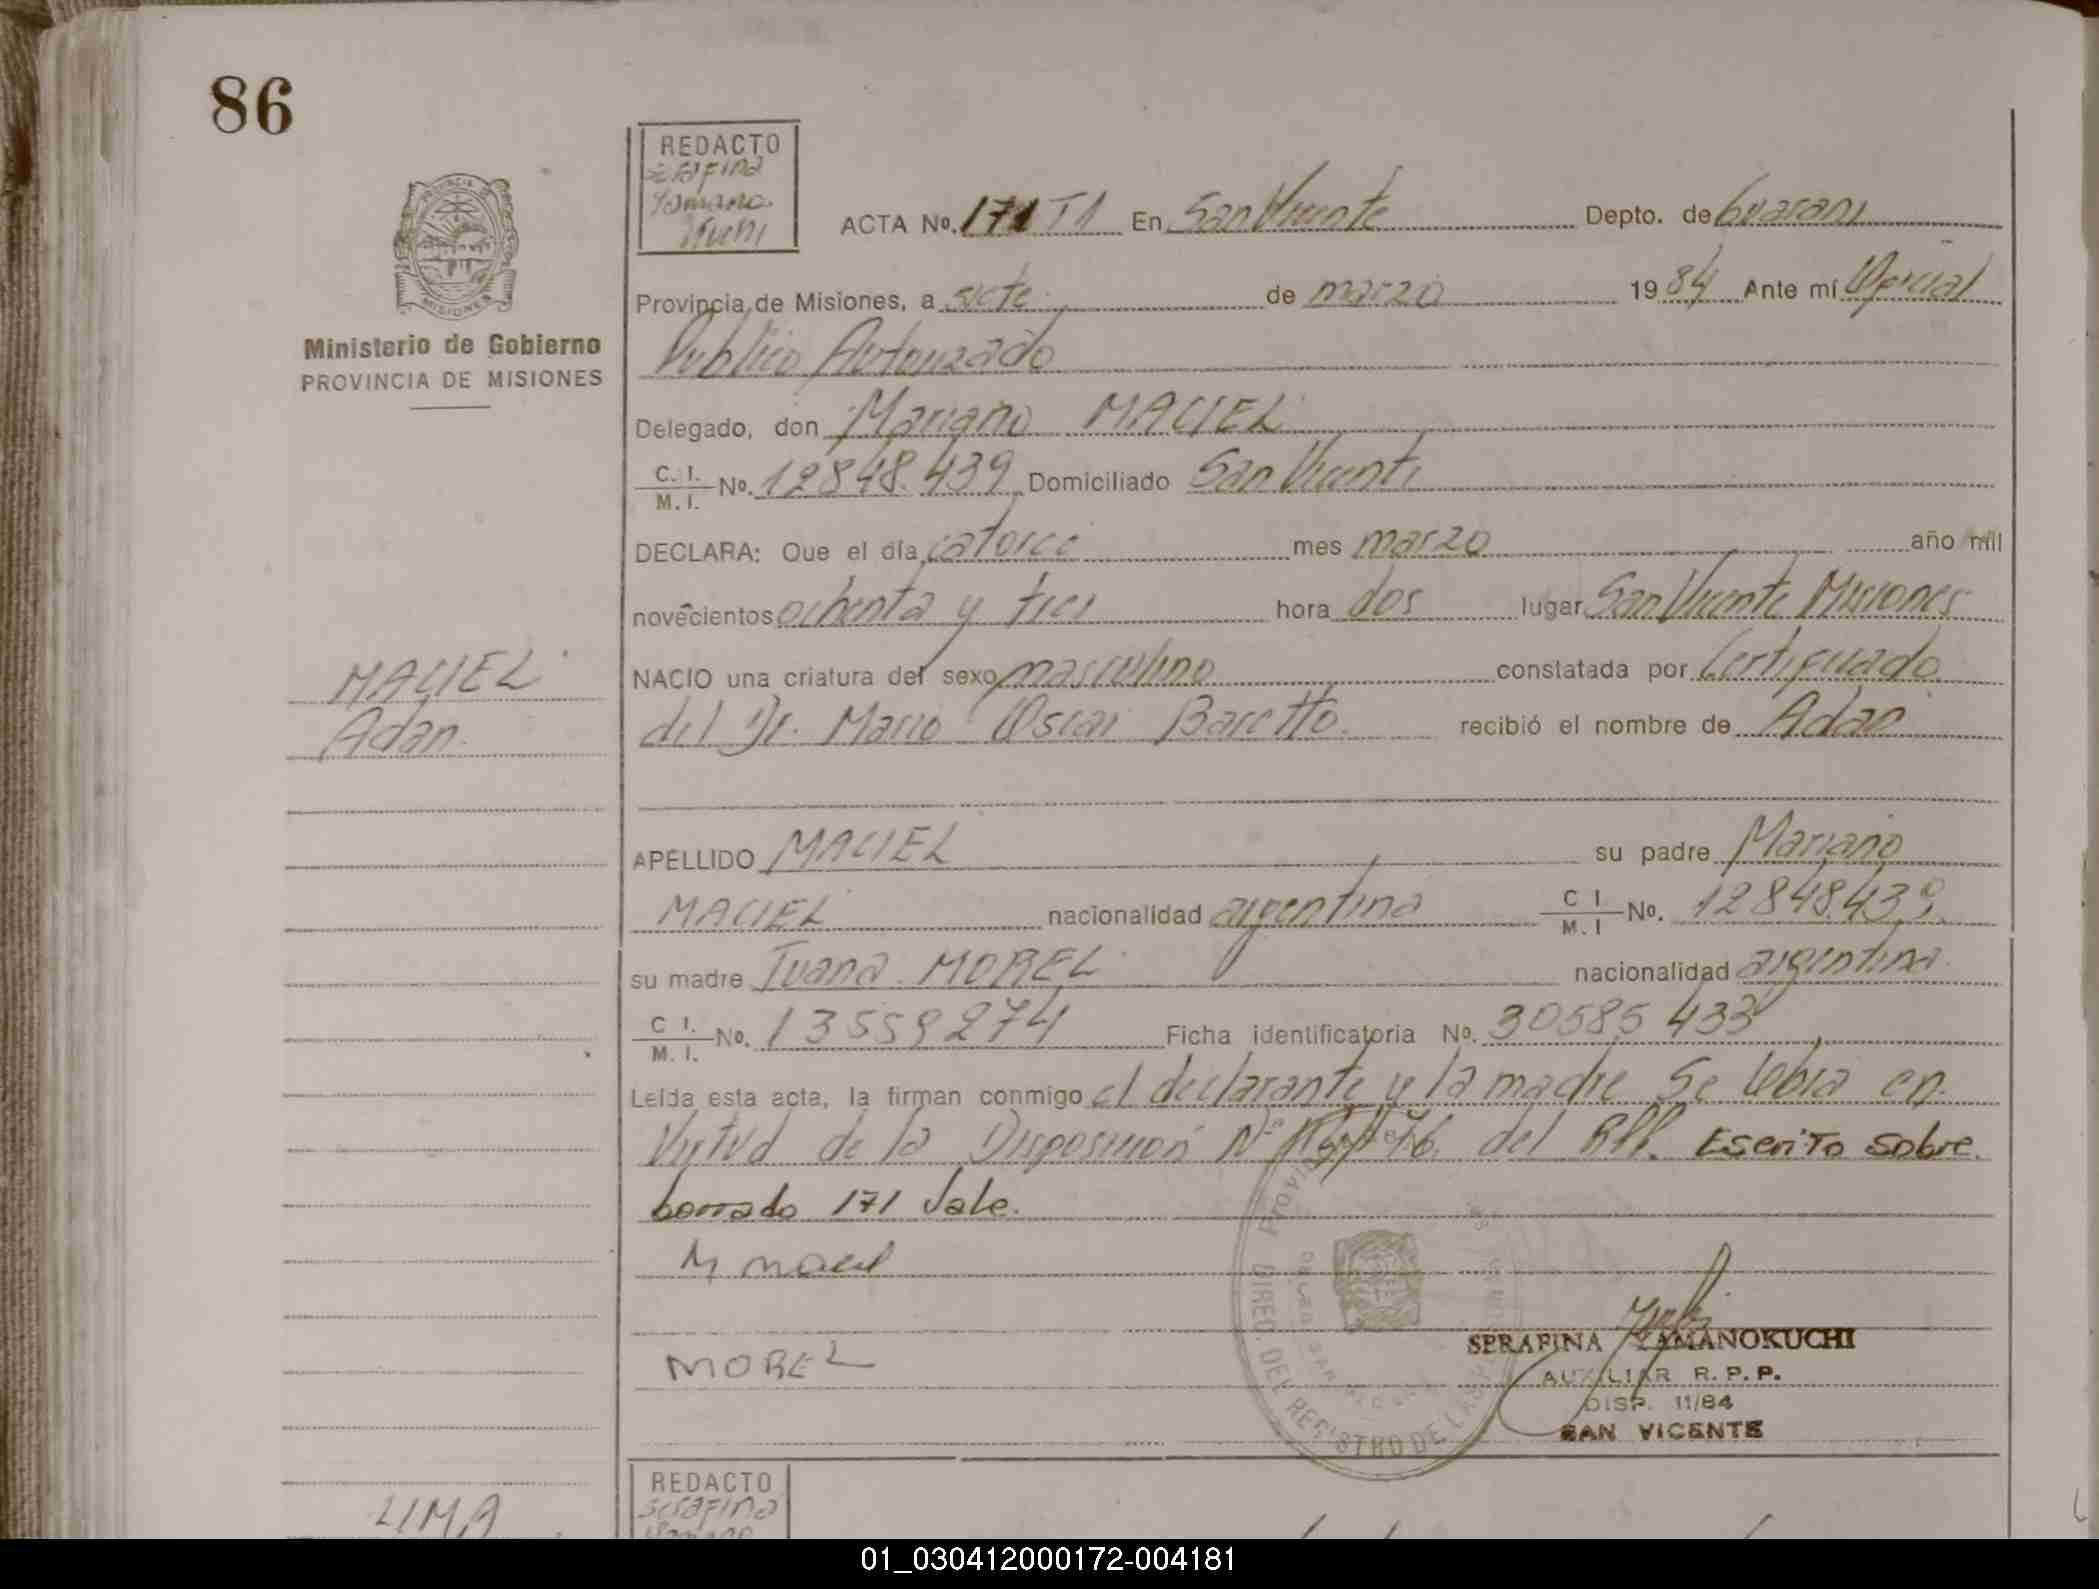 86
REDACTO
Serafina
Yamano
Kuchi
ACTA No. 171 T1 En San Vicente Depto. de Guaraní
Provincia de Misiones, a siete de marzo 1984 Ante mí Oficial
Público Autorizado
Ministerio de Gobierno
PROVINCIA DE MISIONES
Delegado, don Mariano MACIEL
C. I. / M. I. No. 12848.439 Domiciliado San Vicente
DECLARA: Que el día catorce mes marzo año mil
novecientos ochenta y tres hora dos lugar San Vicente Misiones
MACIEL
Adán
NACIO una criatura del sexo masculino constatada por Certificado
del Dr. Mario Oscar Baretto. recibió el nombre de Adán
APELLIDO MACIEL su padre Mariano
MACIEL nacionalidad argentina C I / M. I No. 12848.439
su madre Juana MOREL nacionalidad argentina
C I. / M. I. No. 13559274 Ficha identificatoria No. 30585433
Leída esta acta, la firman conmigo el declarante y la madre Se labra en
Virtud de la Disposición Nº del Escrito sobre
borrado 171 Vale.
M Maciel
MOREL
SERAFINA YAMANOKUCHI
AUXILIAR R. P. P.
DISP. 11/84
SAN VICENTE
DIREC. DEL REGISTRO DE LAS
REDACTO
Serafina
Yamano
LIMA
01_030412000172-004181